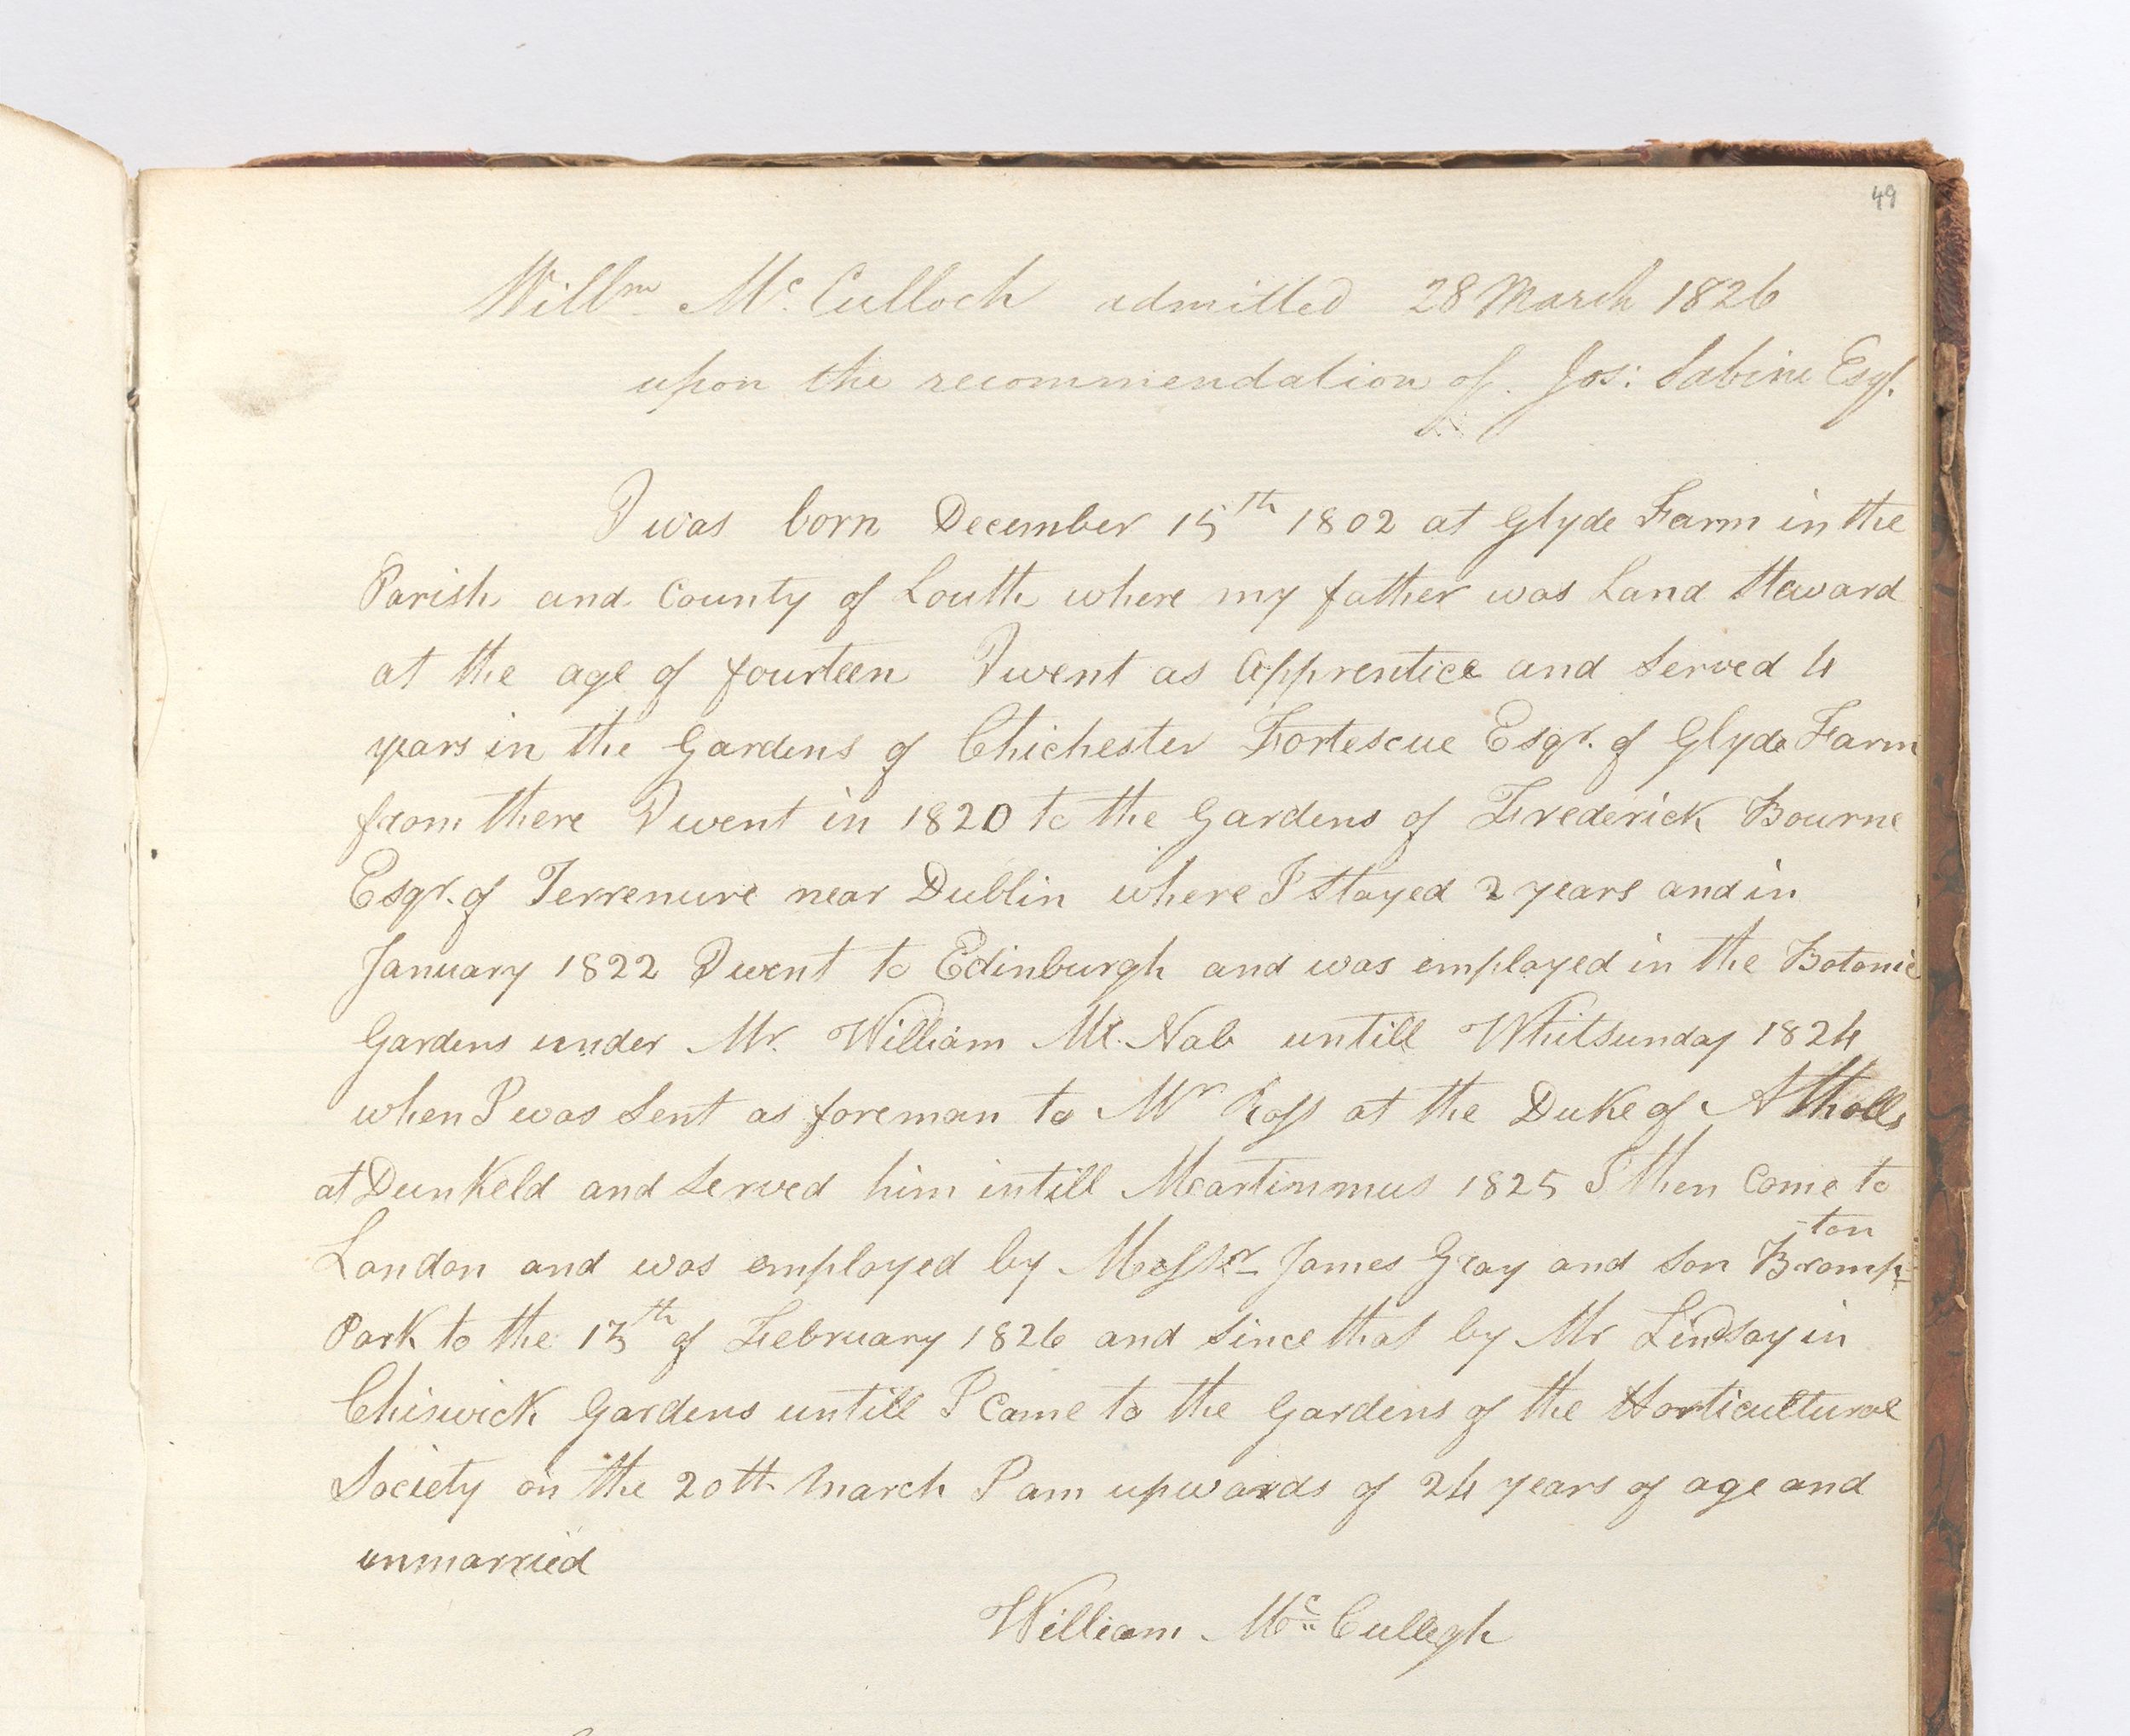 49
Willm McCulloch admitted 28 March 1826
upon the recommendation of Jos: Sabine Esqr.
I was born December 15th 1802 at Glyde Farm in the
Parish and County of Louth where my father was Land Steward
at the age of fourteen I went as Apprentice and Served 4
years in the Gardens of Chichester Fortescue Esqr. of Glyde Farm
from there I went in 1820 to the Gardens of Frederick Bourne
Esqr. of Terrenure near Dublin where I stayed 2 years and in
January 1822 I went to Edinburgh and was employed in the Botanic
Gardens under Mr. William Mc.Nab untill Whitsunday 1824
when I was Sent as foreman to Mr Ross at the Duke of Atholls
at Dunkeld and Served him intill Meartinmus 1825 I then Come to
London and was employed by Messrs James Gray and Son Bromp-
-ton
Park to the 13th of February 1826 and Since that by Mr Lindsay in
Chiswick Gardens untill I Came to the Gardens of the Horticultural
Society on the 20th March I am upwards of 24 years of age and
unmarried
William McCullogh